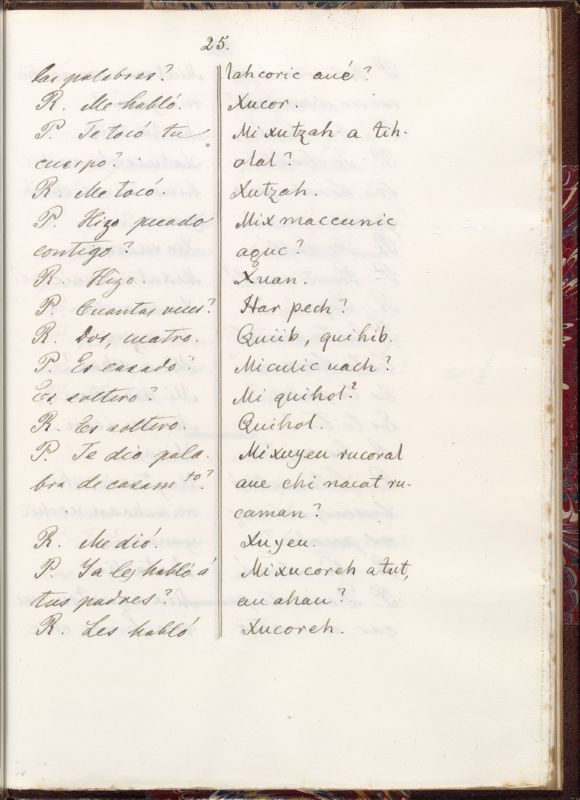 25.
las palabras?
R. Me habló.
P. Te tocó tu
cuerpo?
R. Me tocó.
P. Hizo pecado
contigo?
R. Hizo.
P. Cuantas veces?
R. Dos, cuatro.
P. Es casado?
Es soltero?
R. Es soltero.
P. Te dio pala-
bra de casam.to?
R. Me dió
P. Ya les habló á
tus padres?
R. Les habló
lahcoric aué?
Xucor.
Mi xutzah a tih-
olal?
Xutzah.
Mix maccunic
aquc?
Xuan.
Har pech?
Quiib, quihib.
Miculic uach?
Mi quihol?
Quihol.
Mi xuyeu rucoral
aue chi nacat ru-
caman?
Xuyeu.
Mi xucoreh a tut,
au ahau?
Xucoreh.